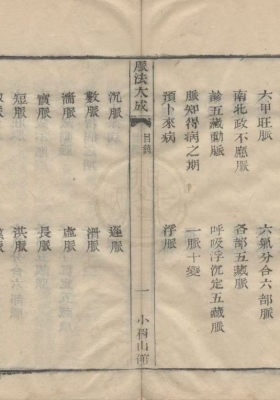 六甲旺脈
六氣分合六部脈
南北政不應脈
各部五藏脈
診五藏動脈
呼吸浮沉定五藏脈
脈知得病之期
一脈十變
預卜來病
浮脈
脈法大成
目錄
一
小桐山館
沉脈
遲脈
數脈
滑脈
濡脈
虛脈
實脈
長脈
短脈
洪脈